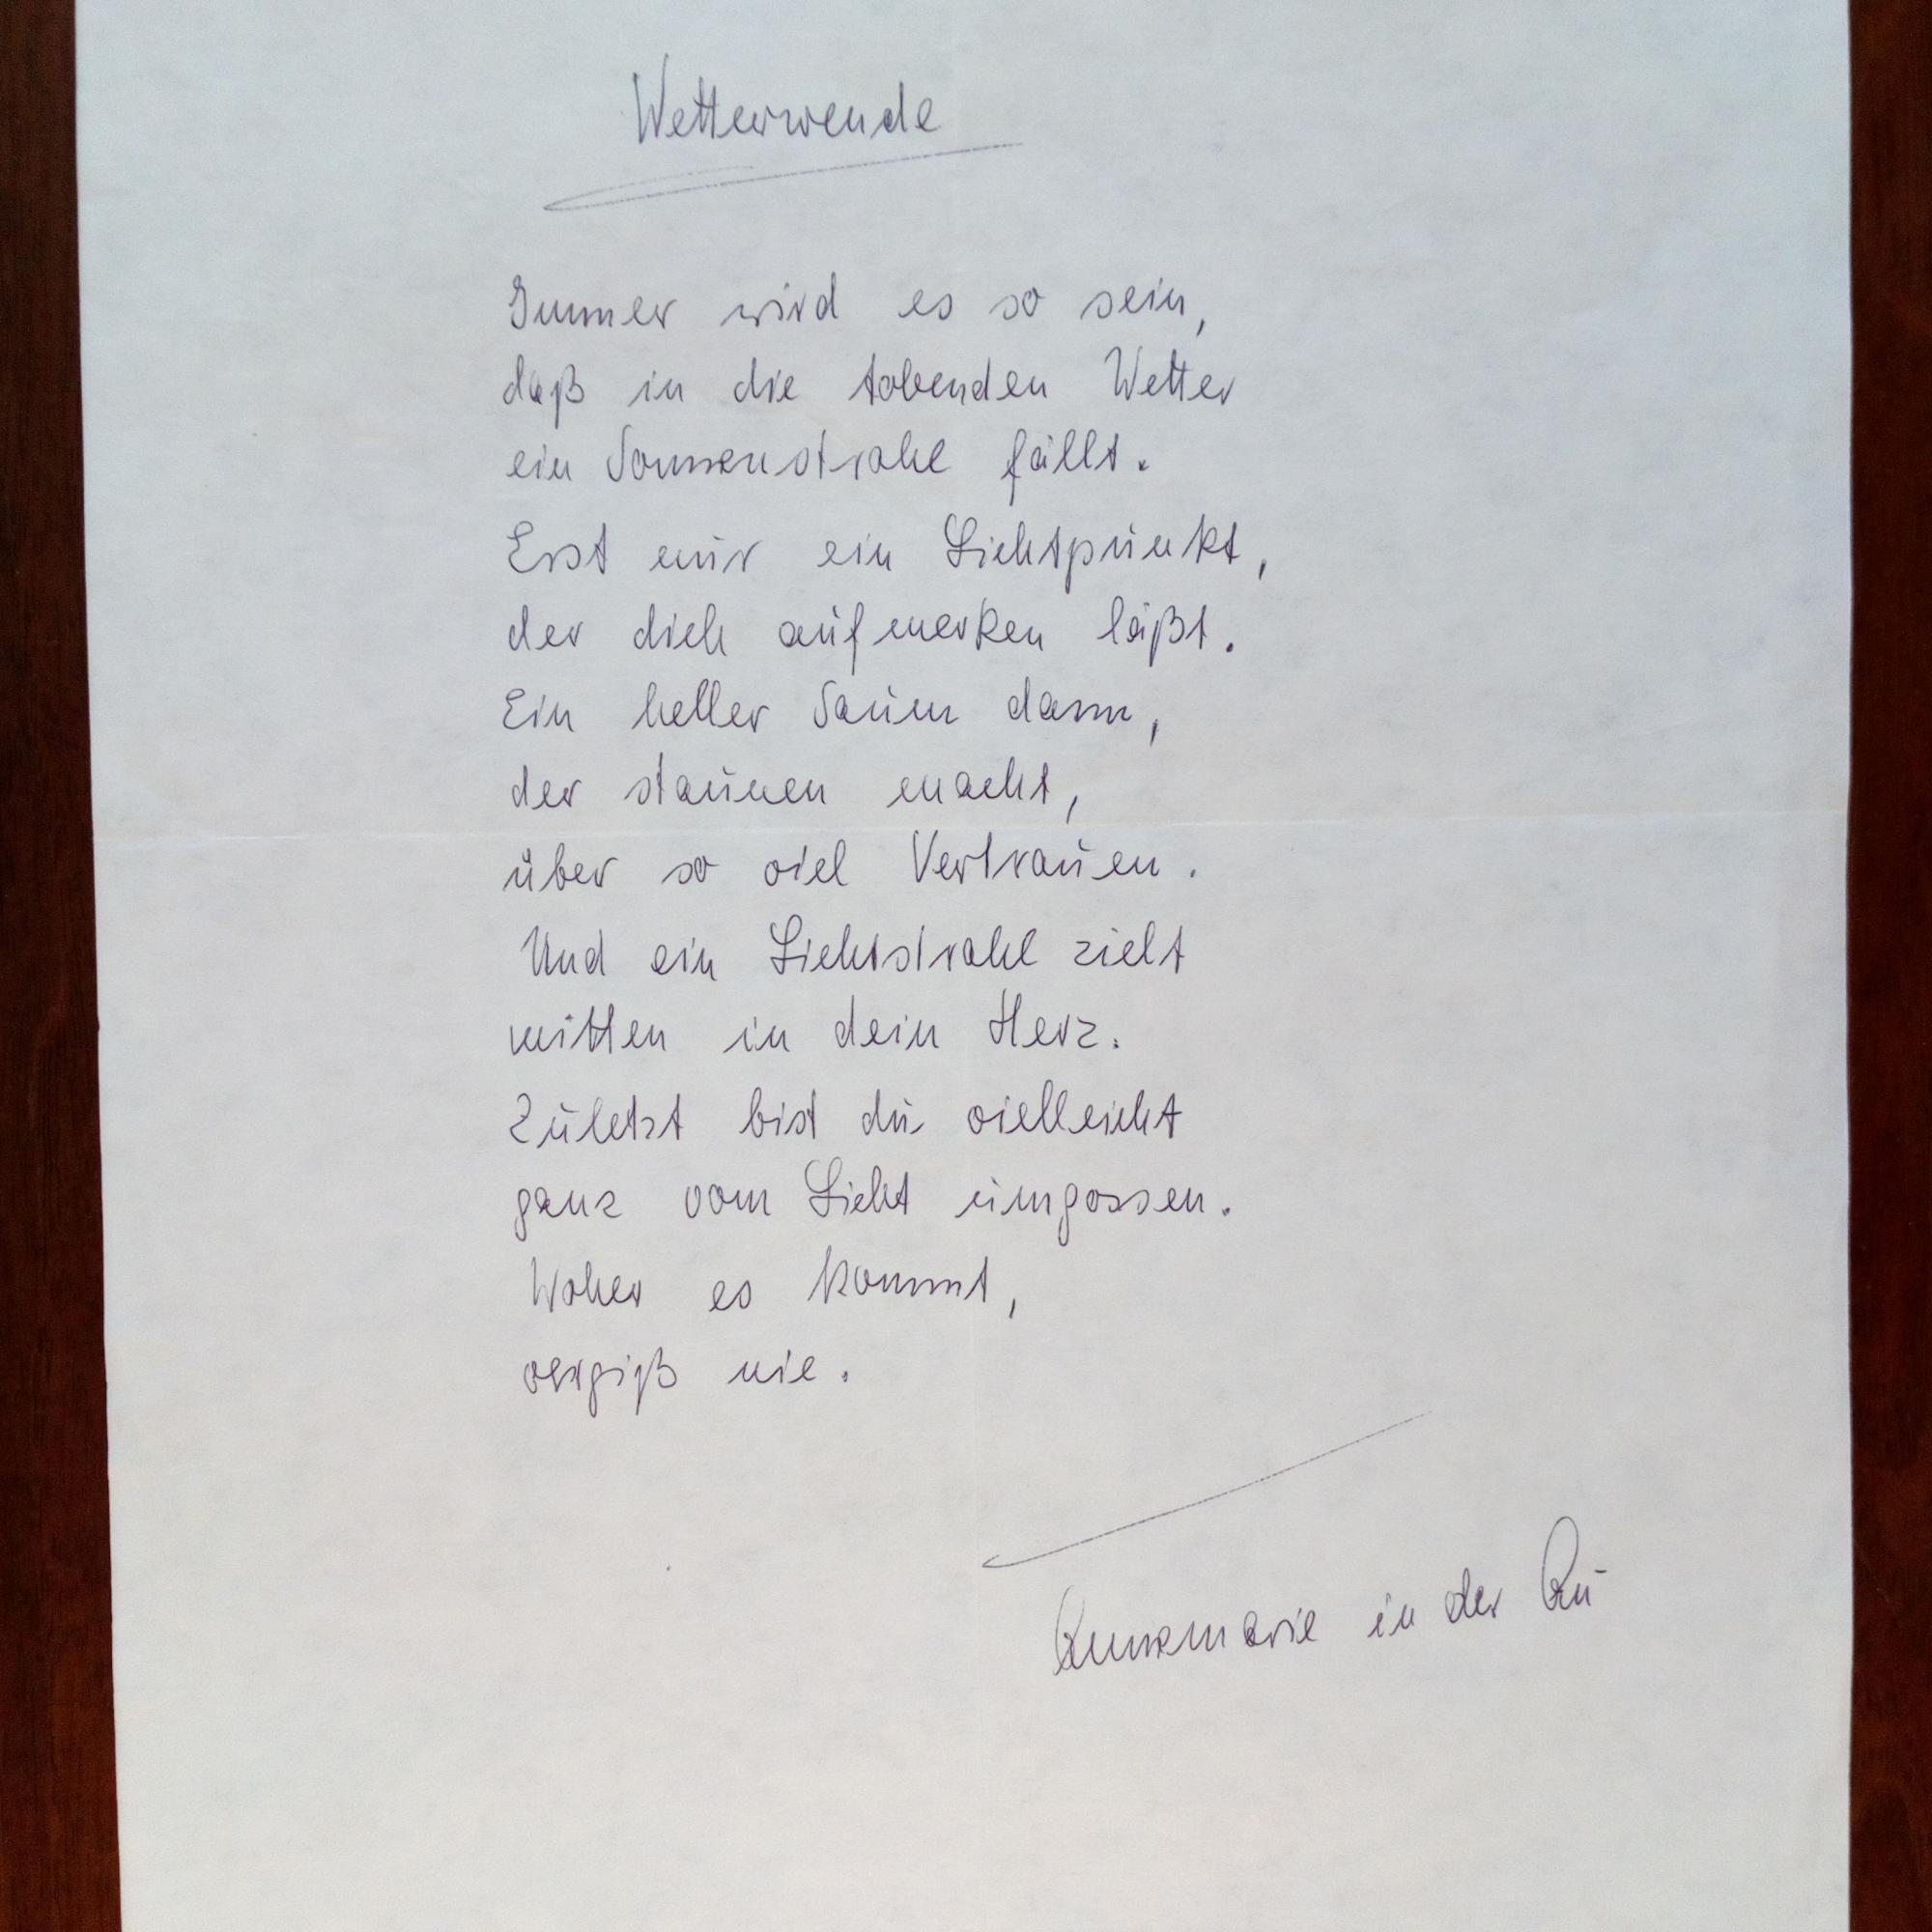 Wetterwende
Immer wird es so sein,
daß in die tobenden Wetter
ein Sonnenstrahl fällt.
Erst nur ein Lichtpunkt,
der dich aufmerken läßt.
Ein heller Saum dann,
der staunen macht,
über so viel Vertrauen.
Und ein Lichtstrahl zielt
mitten in dein Herz.
Zuletzt bist du vielleicht
ganz vom Licht umgossen.
Woher es kommt,
vergiß nie.
Annemarie in der Au